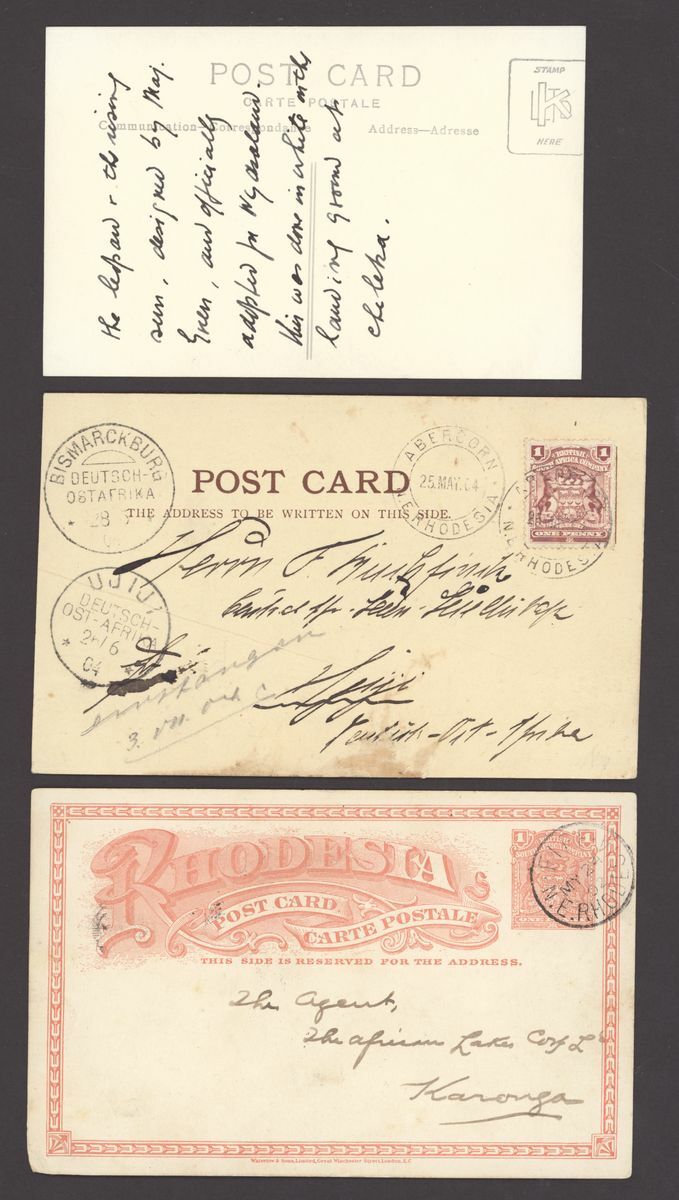 POST CARD
CARTE POSTALE
Communication—Correspondance Address—Adresse
STAMP
HERE
the leopard & the rising
sun, designed by Maj.
Green, and officially
adopted for Nyasaland.
This was done in white on the
landing ground at
Chileka.
BISMARCKBURG
DEUTSCH-
OSTAFRIKA
28
ABERCORN
25.MAY.04
N.E.RHODESIA
1 1
BRITISH
SOUTH AFRICA COMPANY
ONE PENNY
N.E.RHODESIA
POST CARD
THE ADDRESS TO BE WRITTEN ON THIS SIDE.
UJIJI
DEUTSCH-
OST-AFRIKA
04
Herrn F
Deutsch-Ost-Afrika
RHODESIA
POST CARD
CARTE POSTALE
THIS SIDE IS RESERVED FOR THE ADDRESS.
1 1
N.E.RHODES
The Agent,
The African Lakes Corp Ld
Karonga
Waterlow & Sons, Limited, Great Winchester Street, London, E.C.